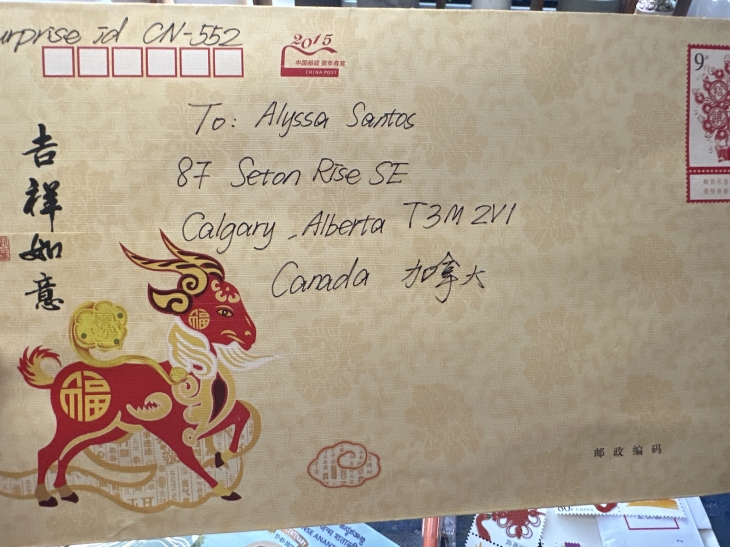 urprise id CN-552
2015
中国邮政 贺年有奖
CHINA POST
9
To: Alyssa Santos
87 Seton Rise SE
Calgary, Alberta T3M 2V1
Canada 加拿大
吉祥如意
福
福
邮政编码
80
CHINA